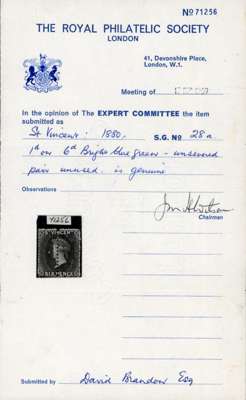 No 71256
THE ROYAL PHILATELIC SOCIETY
LONDON
41, Devonshire Place,
London, W.1.
Meeting of
In the opinion of The EXPERT COMMITTEE the item
submitted as
St Vincent: 1880. S.G. No 28a
1d on 6d Bright blue green - unsevered
pair unused. is genuine
Observations
Chairman
71256
ST VINCENT
SIX PENCE
Submitted by David Brandon Esq